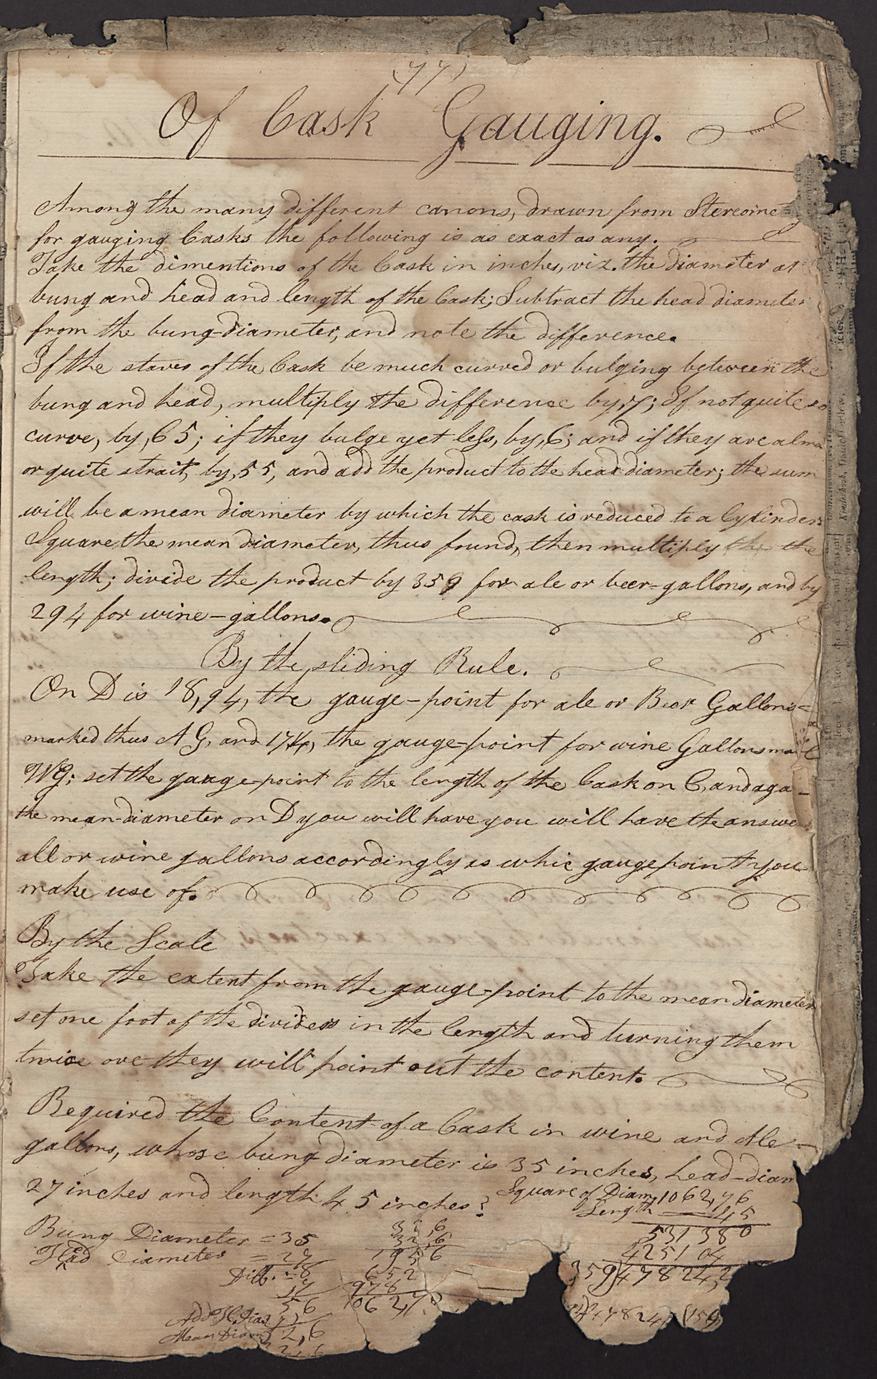 (77)
Of Cask Gauging.
Among the many different canons, drawn from
for gauging Casks the following is as exact as any.
Take the dimentions of the Cask in inches, viz. the diameter at
bung and head and length of the Cask; Subtract the head diameter
from the bung-diameter, and note the difference.
If the staves of the Cask be much curved or bulging between the
bung and head, multiply the difference by ,7; If not quite so
curve, by ,65; if they bulge yet less, by ,6; and if they are alm
or quite strait, by ,55, and add the product to the head diameter; the sum
will be a mean diameter by which the cask is reduced to a Cylinder
Square the mean diameter, thus found, then multiply the
length; divide the product by 359 for ale or beer-gallons, and by
294 for wine-gallons.
By the sliding Rule.
On D is 18,94, the gauge-point for ale or Beer Gallons
marked thus A G, and 17,14, the gauge-point for wine Gallons ma
WG; set the gauge-point to the length of the Cask on C, and aga
the mean-diameter on D you will have you will have the answe
all or wine gallons accordingly as whic gauge point you
make use of.
By the Scale
Take the extent from the gauge-point to the mean diameter
set one foot of the dividers in the length and turning them
twice ove they will point out the content.
Required the Content of a Cask in wine and Ale
gallons, whose bung diameter is 35 inches, head-diam
27 inches and length 45 inches?
Square of Diam, 1062,76
Length 45
531380
425104
359)478242
Bung Diameter = 35
Head Diameter = 27
Diff. = 8
,7
56
Add H. Dia
Mean Diam 32,6
32,6
32,6
1956
652
978
1062,76